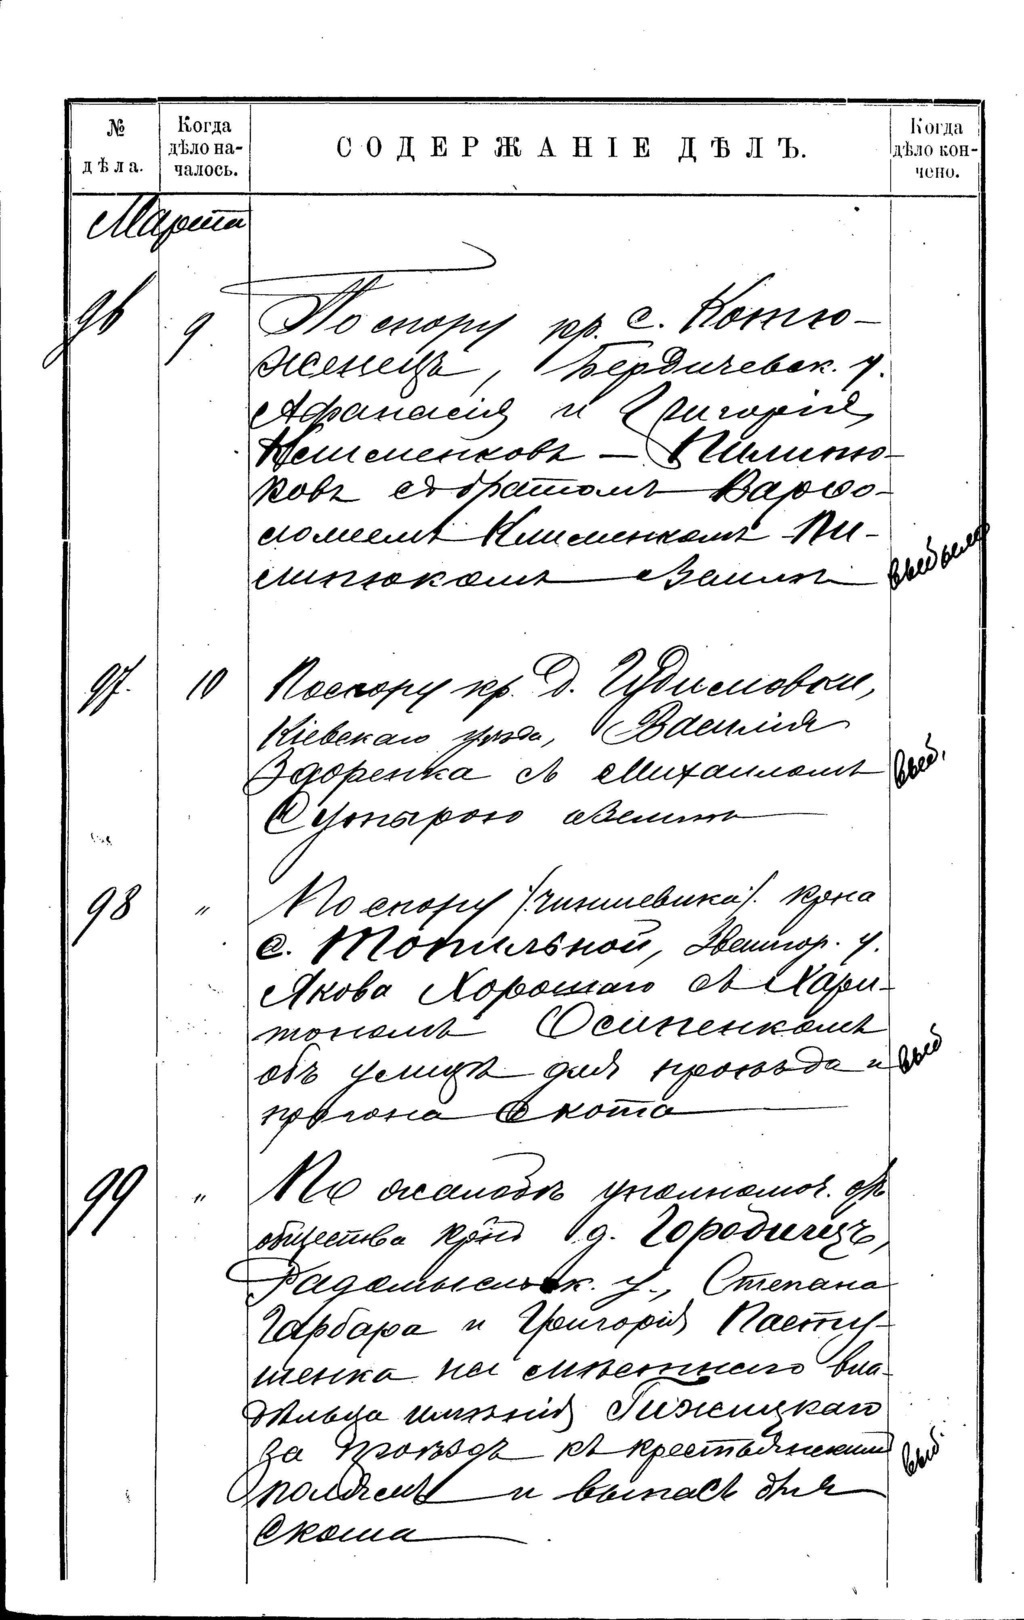 № дѣла.
Когда дѣло началось.
СОДЕРЖАНІЕ ДѢЛЪ.
Когда дѣло кончено.
Марта
96 9. По спору кр. с. Котю-
женецъ, Бердичевск. у.
Афанасія и Григорія
Клименковъ — Пилипю-
ковъ съ братомъ Варфо-
ломеемъ Клименкомъ Пи-
липюкомъ о землѣ
выбыло
97. 10 По спору кр. д. Гудимовки,
Кіевскаго уѣзда, Василія
Здоренка съ Михаиломъ
Супырою о землѣ
выб.
98 " По спору /:чиншевика:/ крна
с. Топильной, Звенигор. у.
Якова Хорошаго съ Хари-
тономъ Осипенкомъ
объ улицѣ для проѣзда и
прогона скота
выб
99 " По жалобѣ уполномоч. отъ
общества крнъ д. Городичецъ,
Радомысльск. у., Степана
Гарбара и Григорія Пасту-
шенка на мѣстнаго вла-
дѣльца имѣнія Гижицкаго
за проѣздъ къ крестьянскимъ
полямъ и выпасъ для
скота
выб.